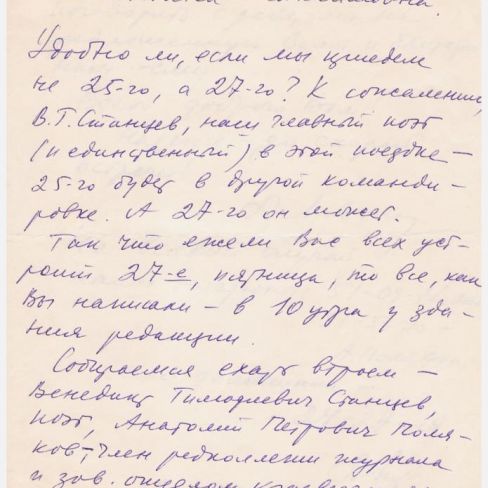 Удобно ли, если мы приедем
не 25-го, а 27-го? К сожалению,
В.Т.Станцев, наш главный поэт
(и единственный) в этой поездке —
25-го будет в другой команди-
ровке. А 27-го он может.
Так что ежели Вас всех уст-
роит 27-е, пятница, то все, как
Вы написали — в 10 утра у зда-
ния редакции.
Собираемся ехать втроем —
Венедикт Тимофеевич Станцев,
поэт, Анатолий Петрович Поля-
ков, член редколлегии журнала
и зав. отделом